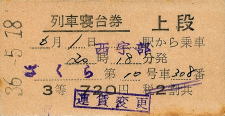 列車寝台券 上段
6月1日 西宇部 駅から乗車
20時18分発
さくら 第10号車308番
3等 720円 税2割共
運賃変更
36-5.18